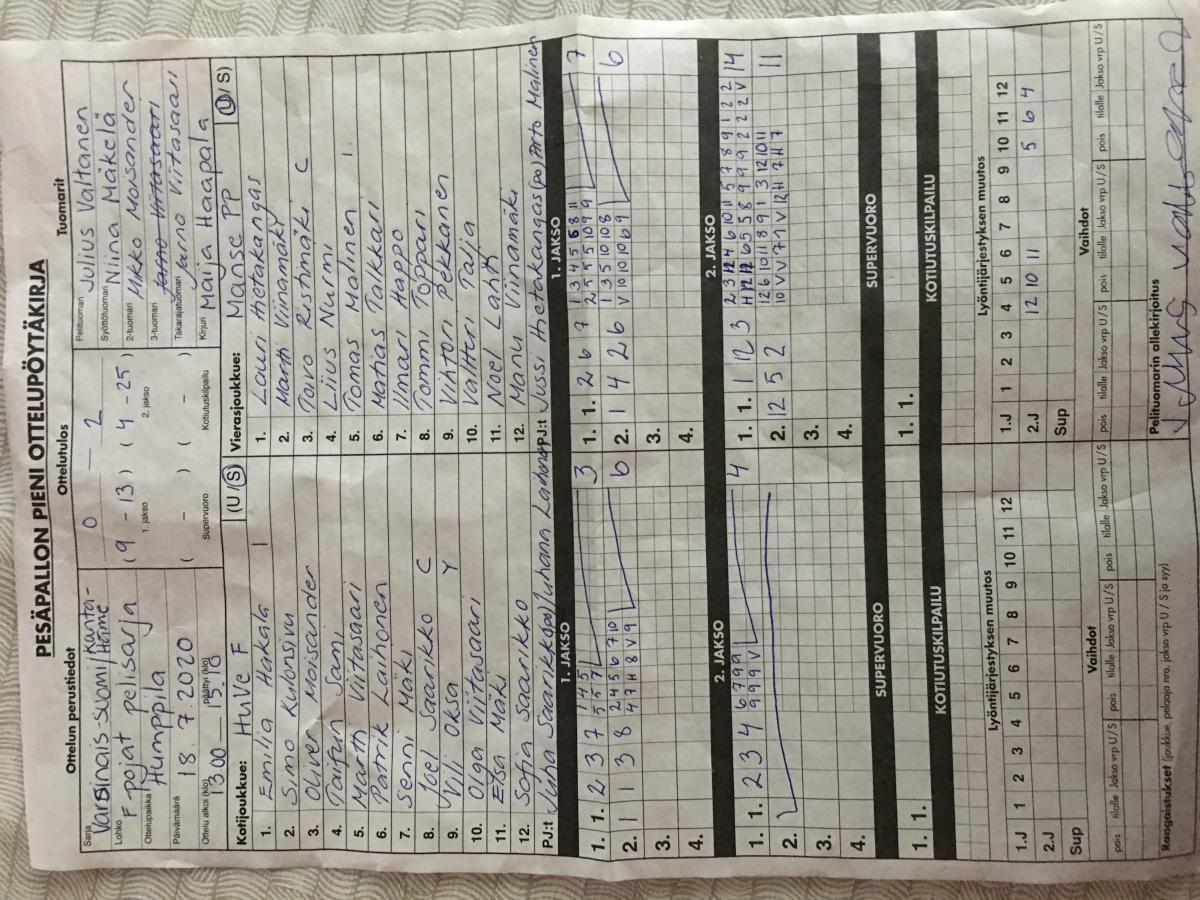 PESÄPALLON PIENI OTTELUPÖYTÄKIRJA
Ottelun perustiedot
Sarja Varsinais-Suomi/Kanta-Häme
Lohko F pojat pelisarja
Ottelupaikka Humppila
Päivämäärä 18.7.2020
Ottelu alkoi (klo) 13.00 päättyi (klo) 15.10
Ottelutulos
0 — 2
(9 - 13) (4 - 25)
1. jakso 2. jakso
( - ) ( - )
Supervuoro Kotiutuskilpailu
Tuomarit
Pelituomari Julius Valtanen
Syöttötuomari Niina Mäkelä
2-tuomari Mikko Moisander
3-tuomari Jarno Viitasaari
Takarajatuomari Jarno Viitasaari
Kirjuri Maija Haapala
Kotijoukkue: HuVe F (U/S)
1. Emilia Hakala 1
2. Simo Kulonsivu
3. Oliver Moisander
4. Taifun Sami
5. Martti Viitasaari
6. Patrik Laihonen
7. Senni Mäki
8. Joel Saarikko C
9. Vili Oksa Y
10. Olga Viitasaari
11. Elsa Mäki
12. Sofia Saarikko
PJ:t Juha Saarikko (po) Juhana Laihonen
Vierasjoukkue: Manse PP (U/S)
1. Lauri Hietakangas
2. Martti Viinamäki
3. Toivo Ristimäki C
4. Liius Nurmi
5. Tomas Malinen 1.
6. Matias Talkkari
7. Ilmari Happo
8. Tommi Toppari
9. Vihtori Pekkanen
10. Valtteri Talja
11. Noel Lahti
12. Manu Viinamäki
PJ:t Jussi Hietakangas (po) Arto Malinen
1. JAKSO
1. 1. 2 3 7 1 4 5 3
5 5 7
2. 1 1 3 8 2 4 5 6 7 10 6
4 7 H 8 V 9
3.
4.
1. JAKSO
1. 1. 2 6 7 1 3 4 5 6 8 11 7
2 5 5 5 10 9 9
2. 1 4 2 6 1 3 5 10 10 8 6
V 10 10 10 6 9
3.
4.
2. JAKSO
1. 1. 2 3 4 6 7 9 9 4
9 9 9 V
2.
3.
4.
2. JAKSO
1. 1. 1 12 3 14
2. 12 5 2 11
3.
4.
SUPERVUORO
1. 1.
KOTIUTUSKILPAILU
SUPERVUORO
1. 1.
KOTIUTUSKILPAILU
Lyöntijärjestyksen muutos
1 2 3 4 5 6 7 8 9 10 11 12
1.J
2.J
Sup
Lyöntijärjestyksen muutos
1 2 3 4 5 6 7 8 9 10 11 12
1.J
2.J 12 10 11 5 6 4
Sup
Vaihdot
pois tilalle Jakso vrp U/S pois tilalle Jakso vrp U/S pois tilalle Jakso vrp U/S
Vaihdot
pois tilalle Jakso vrp U/S pois tilalle Jakso vrp U/S pois tilalle Jakso vrp U/S
Rangaistukset (joukkue, pelaaja nro, jakso vrp U / S ja syy)
Pelituomarin allekirjoitus